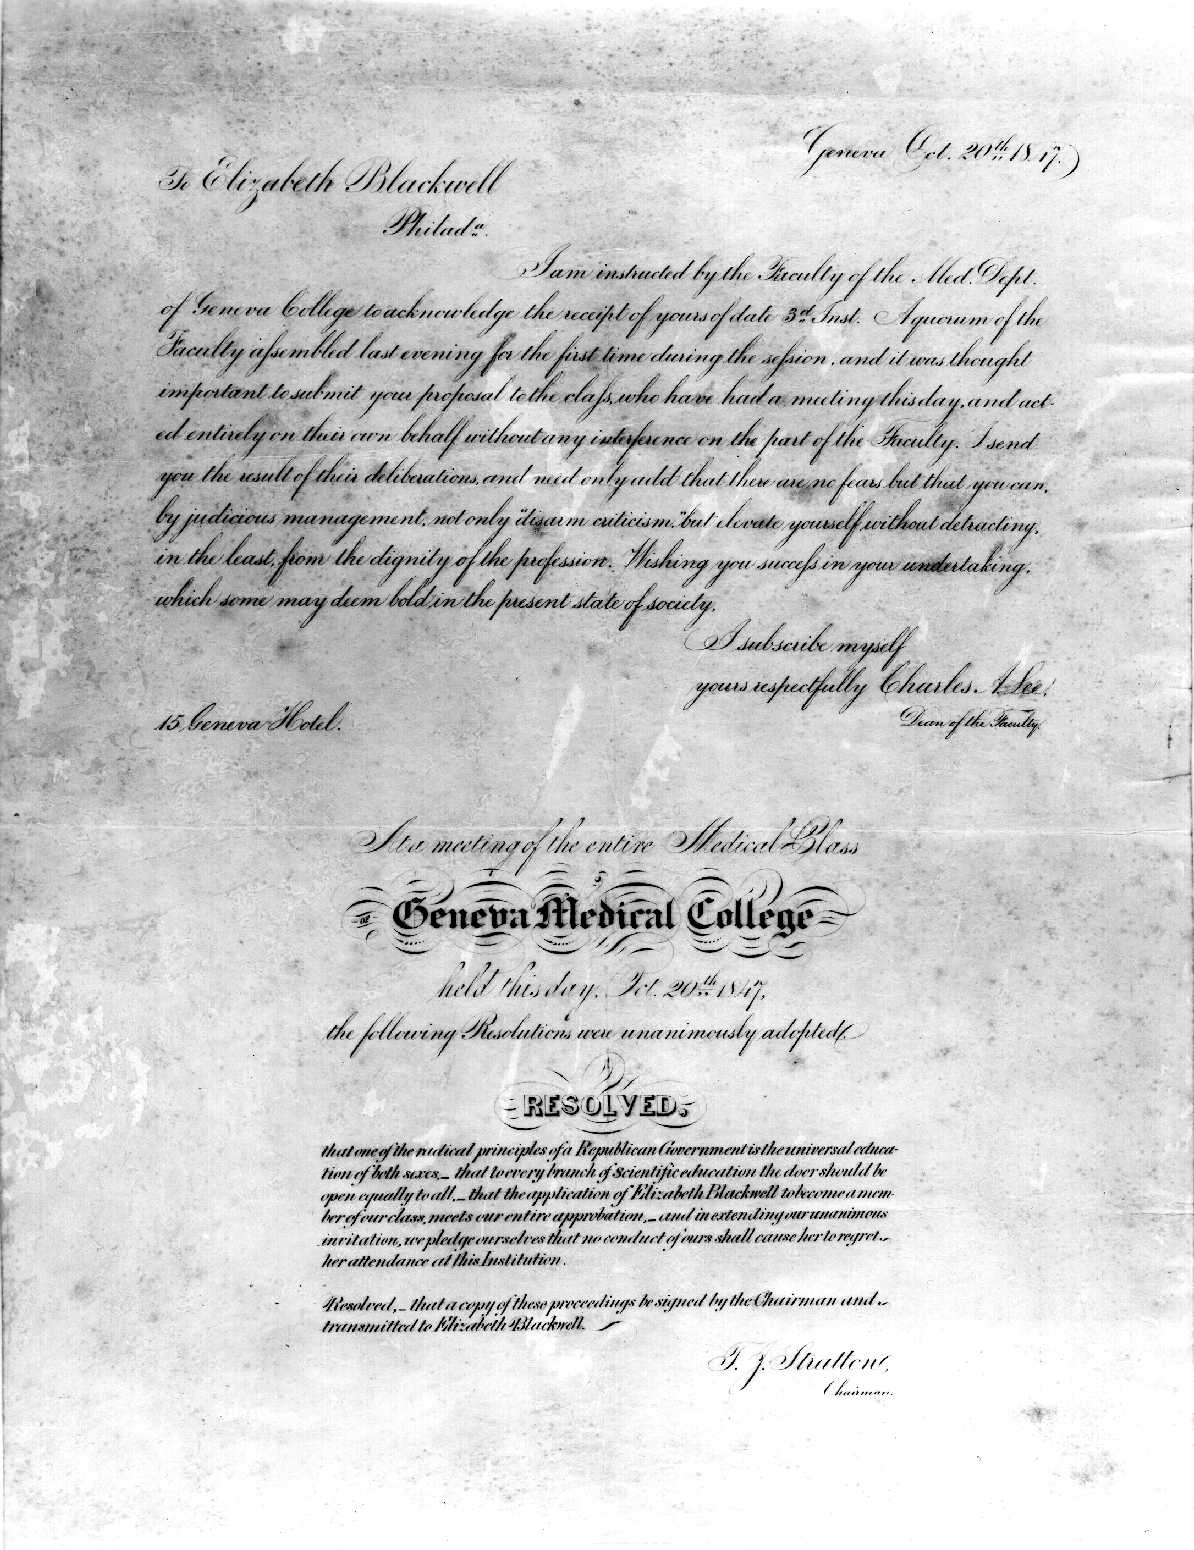 Geneva Oct. 20th 1847.
To Elizabeth Blackwell
Philada.
I am instructed by the Faculty of the Med. Dept.
of Geneva College to acknowledge the receipt of yours of date 3rd Inst. A quorum of the
Faculty assembled last evening for the first time during the session, and it was thought
important to submit your proposal to the class, who have had a meeting this day, and act-
ed entirely on their own behalf without any interference on the part of the Faculty. I send
you the result of their deliberations, and need only add that there are no fears but that you can,
by judicious management, not only "disarm criticism," but elevate yourself, without detracting,
in the least, from the dignity of the profession. Wishing you success in your undertaking,
which some may deem bold, in the present state of society,
I subscribe myself
yours respectfully Charles A Lee.
Dean of the Faculty.
15 Geneva Hotel.
At a meeting of the entire Medical Class
of Geneva Medical College
held this day, Oct. 20th 1847,
the following Resolutions were unanimously adopted.
RESOLVED,
that one of the radical principles of a Republican Government is the universal educa-
tion of both sexes,_ that to every branch of Scientific education the door should be
open equally to all,_ that the application of Elizabeth Blackwell to become a mem-
ber of our class, meets our entire approbation,_ and in extending our unanimous
invitation, we pledge ourselves that no conduct of ours shall cause her to regret
her attendance at this Institution.
Resolved,_ that a copy of these proceedings be signed by the Chairman and
transmitted to Elizabeth Blackwell.
T. J. Stratton,
Chairman.